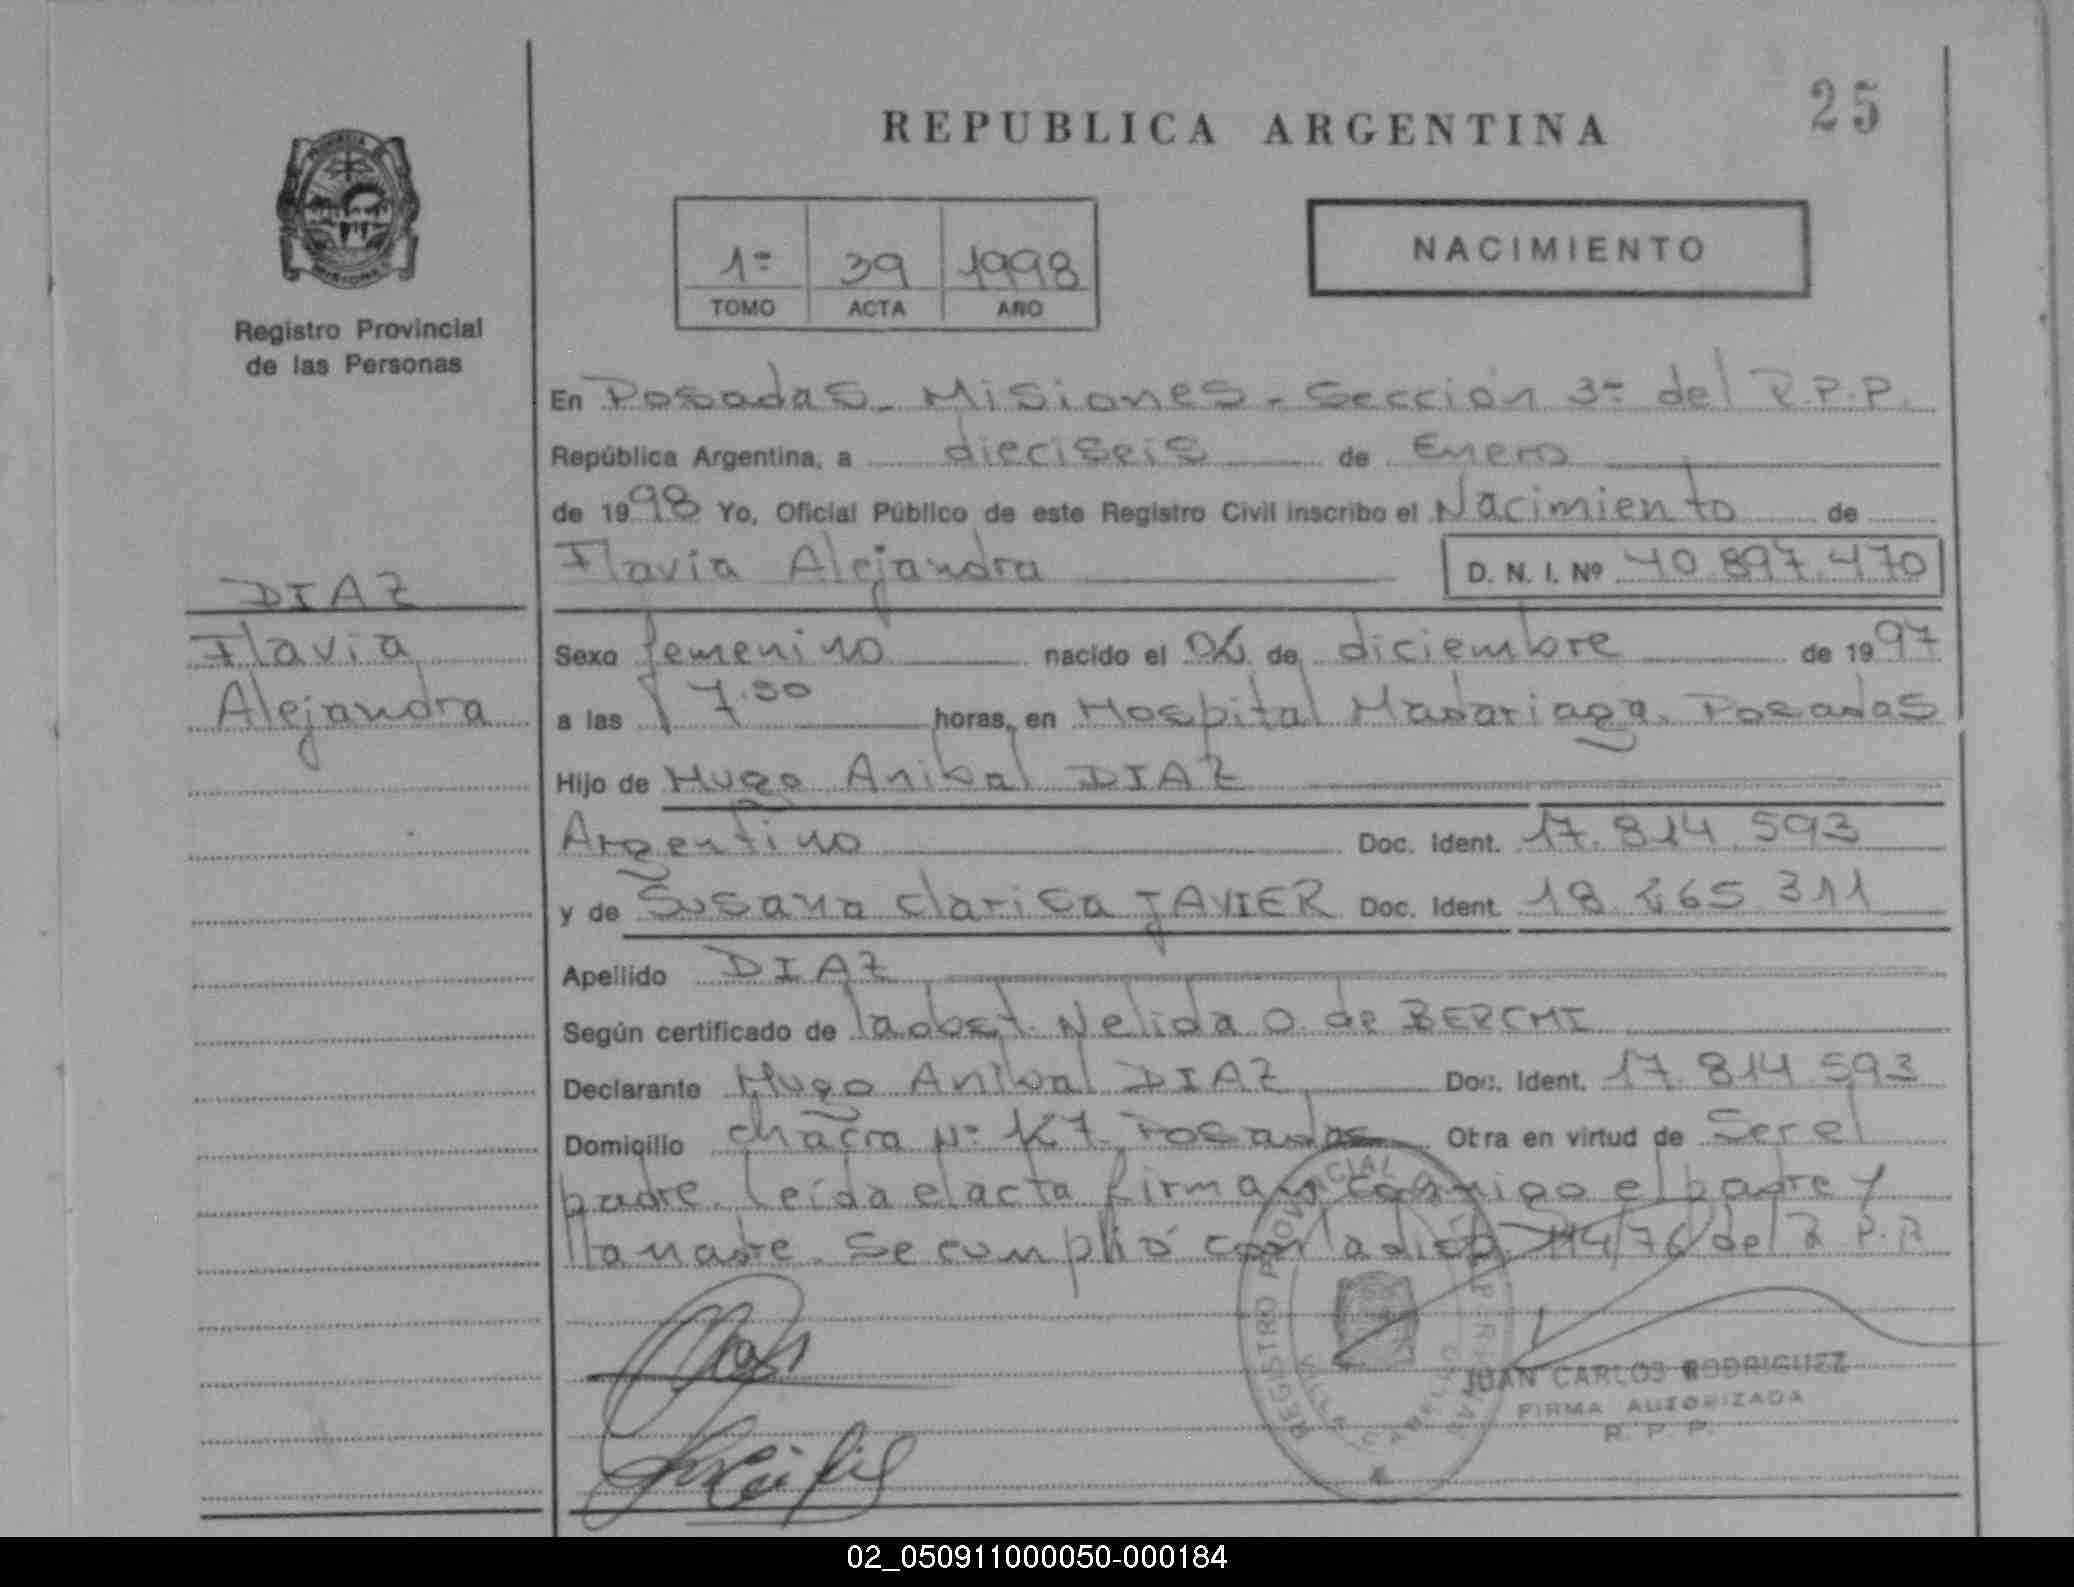 REPUBLICA ARGENTINA
25
Registro Provincial
de las Personas
1º 39 1998
TOMO ACTA AÑO
NACIMIENTO
En Posadas - Misiones - Sección 3º del R.P.P.
República Argentina, a dieciseis de Enero
de 1998 Yo, Oficial Público de este Registro Civil inscribo el Nacimiento de
Flavia Alejandra D. N. I. Nº 40.897.470
DIAZ
Flavia
Alejandra
Sexo femenino nacido el de diciembre de 1997
a las horas, en Hospital Madariaga. Posadas
Hijo de Hugo Anibal DIAZ
Argentino Doc. Ident. 17.814.593
y de Susana Clarisa JAVIER Doc. Ident. 18.265.311
Apellido DIAZ
Según certificado de la obst. Nelida O. de
Declarante Hugo Anibal DIAZ Doc. Ident. 17.814.593
Domicilio chacra Nº Posadas Otra en virtud de Ser el
padre. Leída el acta firman conmigo el padre y
la madre. Se cumplió con la 114/76 del R.P.P.
REGISTRO PROVINCIAL
JUAN CARLOS RODRIGUEZ
FIRMA AUTORIZADA
R. P. P.
02_050911000050-000184